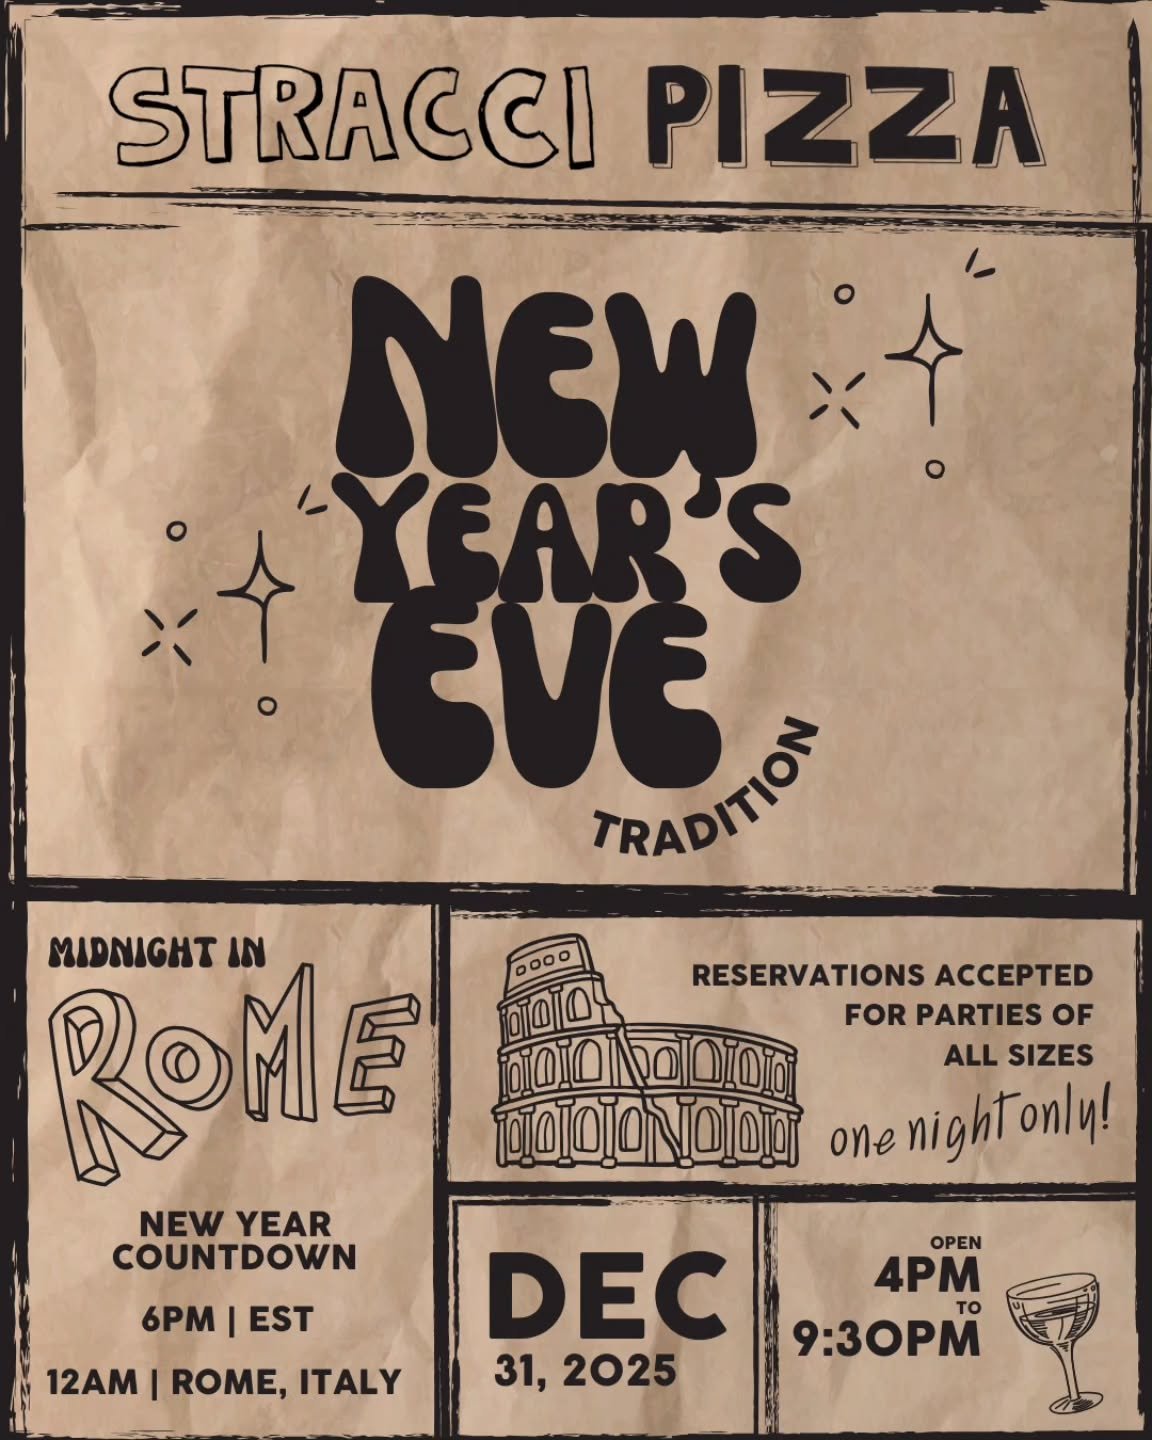 STRACCI PIZZA
NEW
YEAR'S
EVE
TRADITION
MIDNIGHT IN
ROME
NEW YEAR
COUNTDOWN
6PM | EST
12AM | ROME, ITALY
RESERVATIONS ACCEPTED
FOR PARTIES OF
ALL SIZES
one night only!
DEC
31, 2025
OPEN
4PM
TO
9:30PM